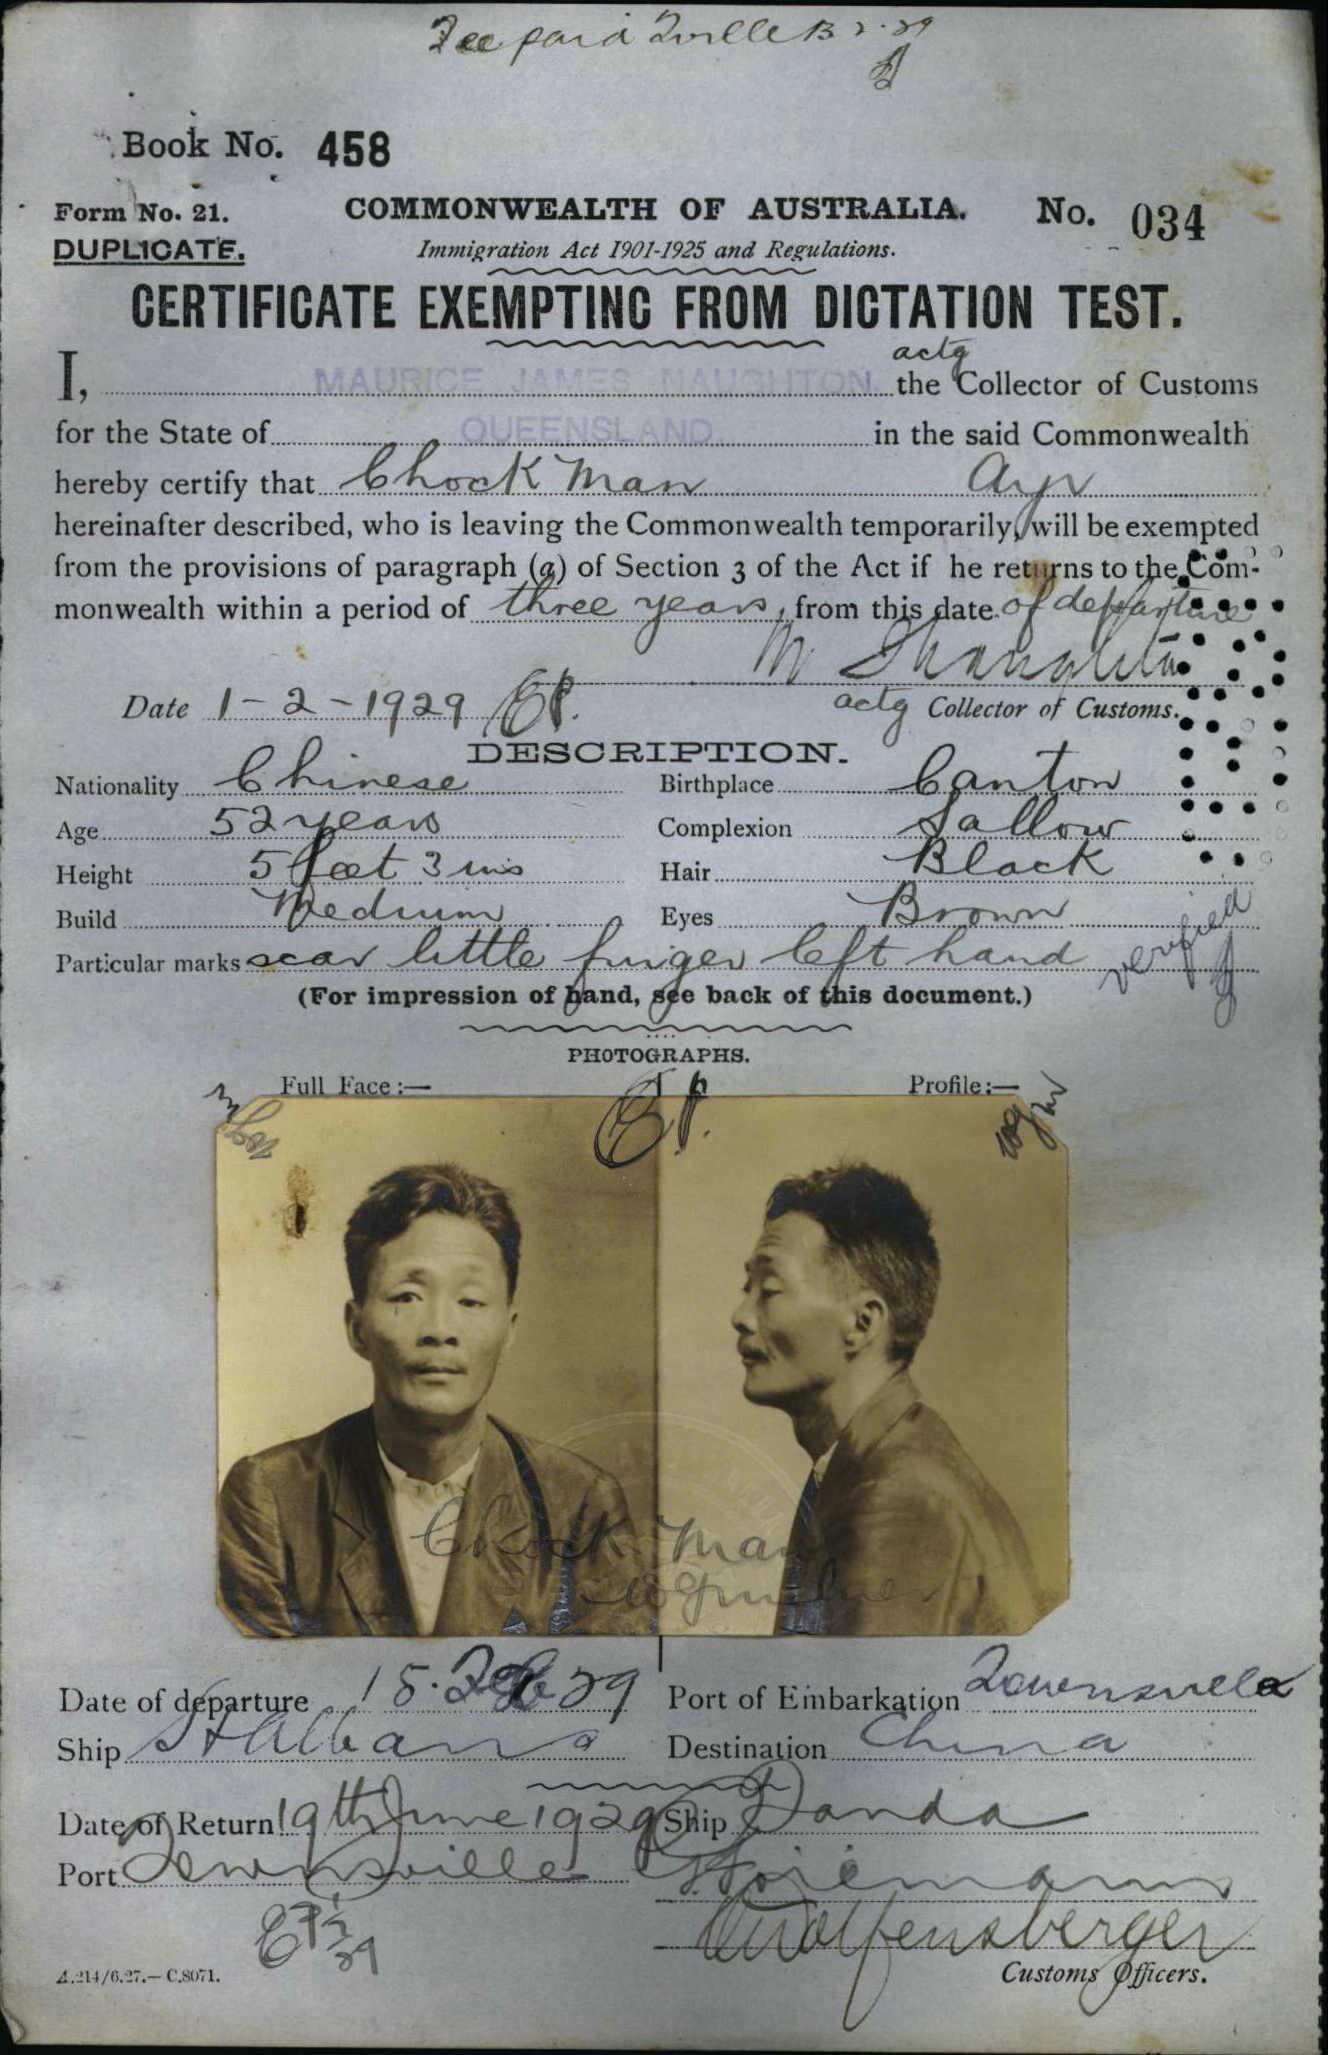 Fee paid Tville B 2.29
Book No. 458
Form No. 21.
COMMONWEALTH OF AUSTRALIA.
No. 034
DUPLICATE.
Immigration Act 1901-1925 and Regulations.
CERTIFICATE EXEMPTING FROM DICTATION TEST.
actg
I, MAURICE JAMES NAUGHTON. the Collector of Customs
for the State of QUEENSLAND. in the said Commonwealth
hereby certify that Chock Man Ayr
hereinafter described, who is leaving the Commonwealth temporarily, will be exempted
from the provisions of paragraph (a) of Section 3 of the Act if he returns to the Com-
monwealth within a period of three years, from this date of departure
Date 1-2-1929
actg Collector of Customs.
DESCRIPTION.
Nationality Chinese Birthplace Canton
Age 52 years Complexion Sallow
Height 5 feet 3 ins Hair Black
Build Medium Eyes Brown
Particular marks scar little finger left hand
verified
(For impression of hand, see back of this document.)
PHOTOGRAPHS.
Full Face:— Profile:—
Chock Man
Date of departure 18. Feb 29 Port of Embarkation Townsville
Ship St Albans Destination China
Date of Return 19th June 1929 Ship Tanda
Port Townsville
Wolfensberger
Customs Officers.
A.214/6.27.—C.8071.